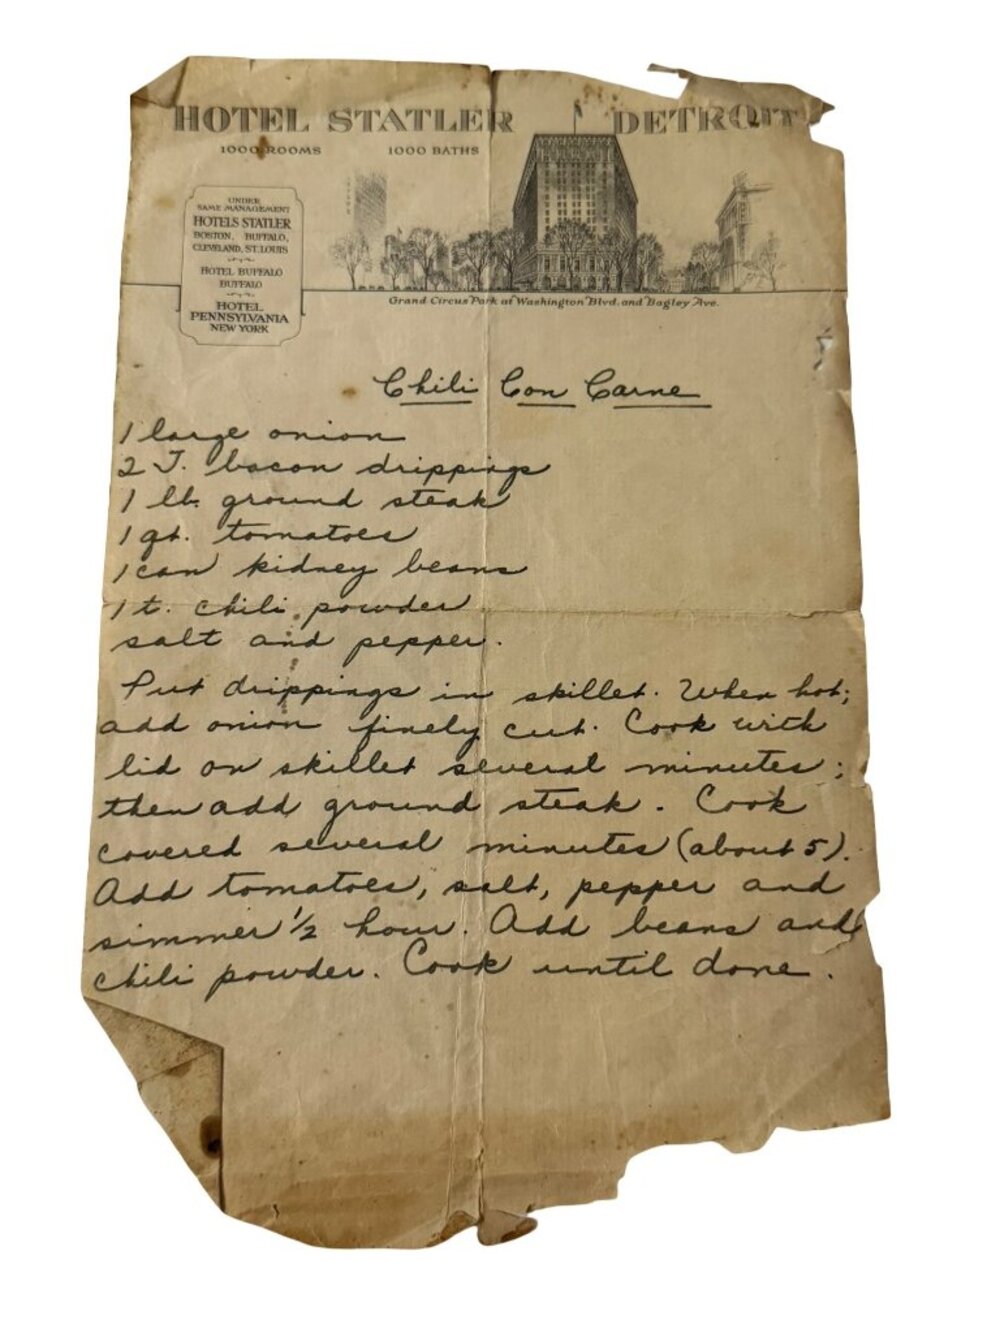 HOTEL STATLER DETROIT
1000 ROOMS 1000 BATHS
UNDER
SAME MANAGEMENT
HOTELS STATLER
BOSTON, BUFFALO,
CLEVELAND, ST. LOUIS
HOTEL BUFFALO
BUFFALO
HOTEL
PENNSYLVANIA
NEW YORK
Grand Circus Park at Washington Blvd. and Bagley Ave.
Chili Con Carne
1 large onion
2 T. bacon drippings
1 lb. ground steak
1 qt. tomatoes
1 can kidney beans
1 t. chili powder
salt and pepper.
Put drippings in skillet. When hot;
add onion finely cut. Cook with
lid on skillet several minutes;
then add ground steak. Cook
covered several minutes (about 5).
Add tomatoes, salt, pepper and
simmer 1/2 hour. Add beans and
chili powder. Cook until done.